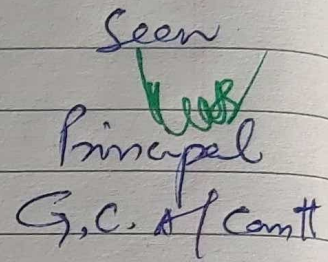 Seen
Principal
G.C. A/Cantt